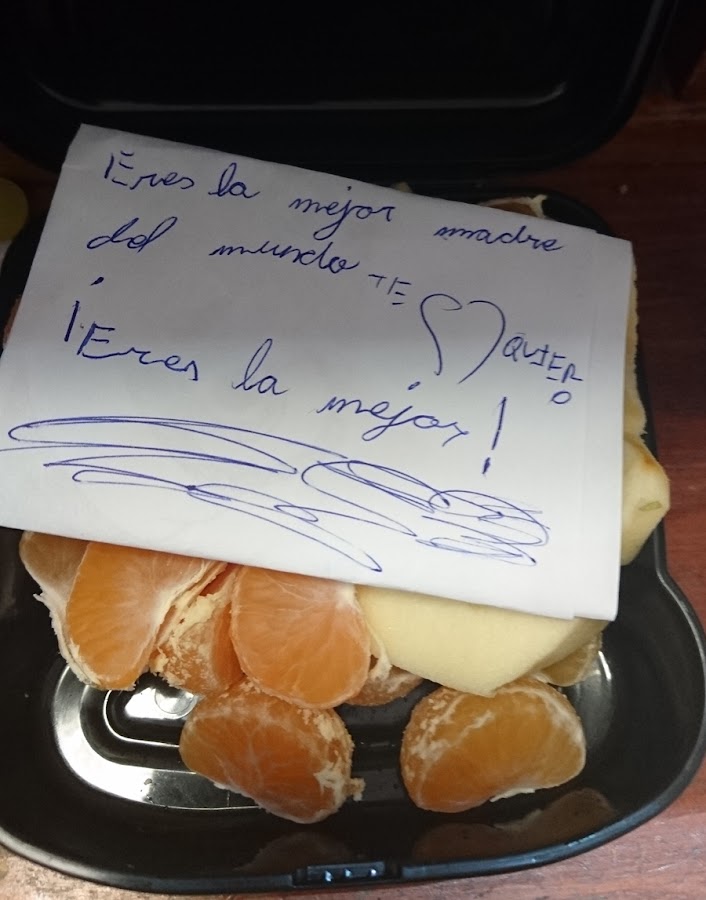 ¡Eres la mejor madre
del mundo TE QUIERO
¡Eres la mejor!